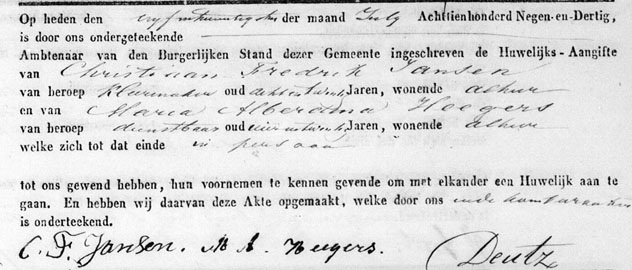 Op heden den vyfentwintigsten der maand July Achttienhonderd Negen-en-Dertig,
is door ons ondergeteekende
Ambtenaar van den Burgerlijken Stand dezer Gemeente ingeschreven de Huwelijks-Aangifte
van Christiaan Fredrik Jansen
van beroep kleermaker oud Jaren, wonende alhier
en van Maria Alberdina Heegers
van beroep dienstbaar oud Jaren, wonende alhier
welke zich tot dat einde in persoon
tot ons gewend hebben, hun voornemen te kennen gevende om met elkander een Huwelijk aan te
gaan. En hebben wij daarvan deze Akte opgemaakt, welke door ons ende komparanten
is onderteekend.
C. F. Jansen. M A Heegers. Deutz